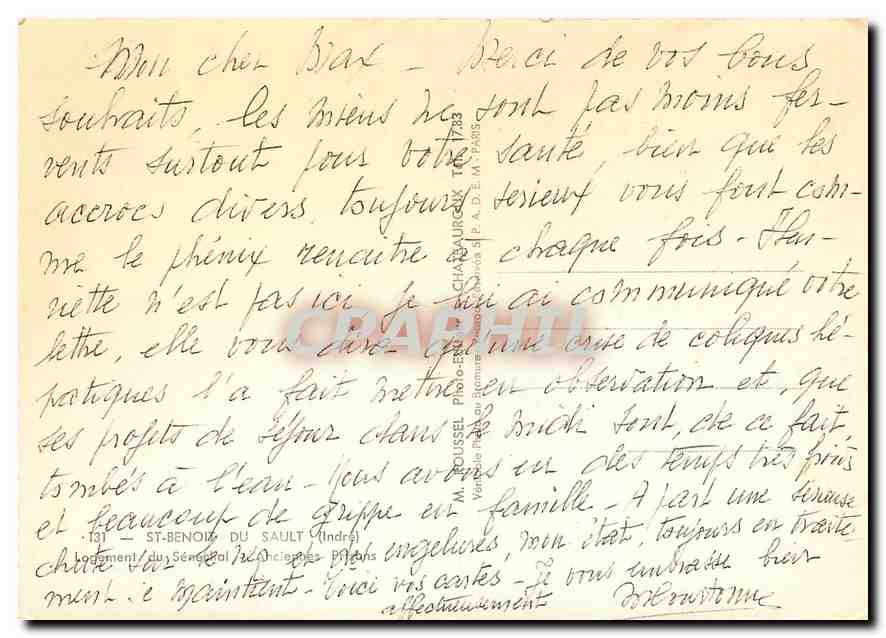 Mon cher Max - Merci de vos bons
souhaits, les miens ne sont pas moins fer-
vents surtout pour votre santé, bien que les
accrocs divers, toujours serieux vous font com-
me le phénix renaitre à chaque fois - Hen-
riette n'est pas ici je lui ai communiqué votre
lettre, elle vous dira qu'une crise de coliques hé-
patiques l'a fait mettre en observation et, que
ses projets de séjour dans le midi sont, de ce fait,
tombés à l'eau - Nous avons eu des temps très froids
et beaucoup de grippe en famille - A part une sérieuse
chute sur le et des engelures, mon état, toujours en traite-
ment se maintient - Voici vos cartes - Je vous embrasse bien
affectueusement
131 - ST-BENOIT DU SAULT (Indre)
Logement du Sénéchal - Anciennes Prisons
M. ROUSSEL Photo-Edit. CHATEAUROUX Tél. 17.83
Véritable Photo au Bromure - S. P. A. D. E. M - PARIS
CPAPHIL